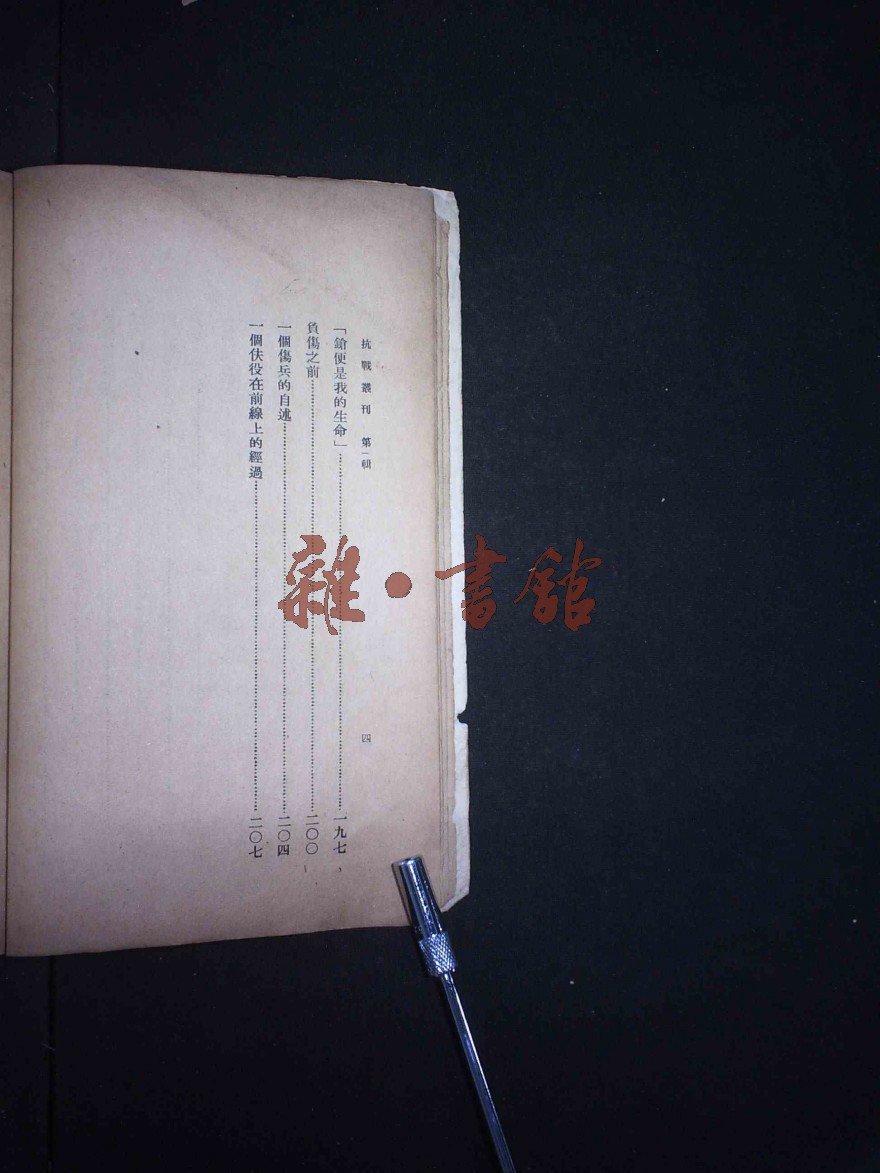 抗戰叢刊 第一輯
四
「鎗便是我的生命」……一九七
負傷之前……二〇〇
一個傷兵的自述……二〇四
一個伕役在前線上的經過……二〇七
雜·書館